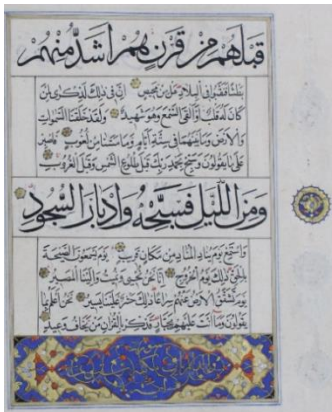 قبلهم من قرن هم أشد منهم
بطشا فنقبوا في البلاد هل من محيص إن في ذلك لذكرى لمن
كان له قلب أو ألقى السمع وهو شهيد ولقد خلقنا السموات
والأرض وما بينهما في ستة أيام وما مسنا من لغوب فاصبر
على ما يقولون وسبح بحمد ربك قبل طلوع الشمس وقبل الغروب
ومن الليل فسبحه وأدبار السجود
واستمع يوم يناد المناد من مكان قريب يوم يسمعون الصيحة
بالحق ذلك يوم الخروج إنا نحن نحيي ونميت وإلينا المصير
يوم تشقق الأرض عنهم سراعا ذلك حشر علينا يسير نحن أعلم بما
يقولون وما أنت عليهم بجبار فذكر بالقرآن من يخاف وعيد